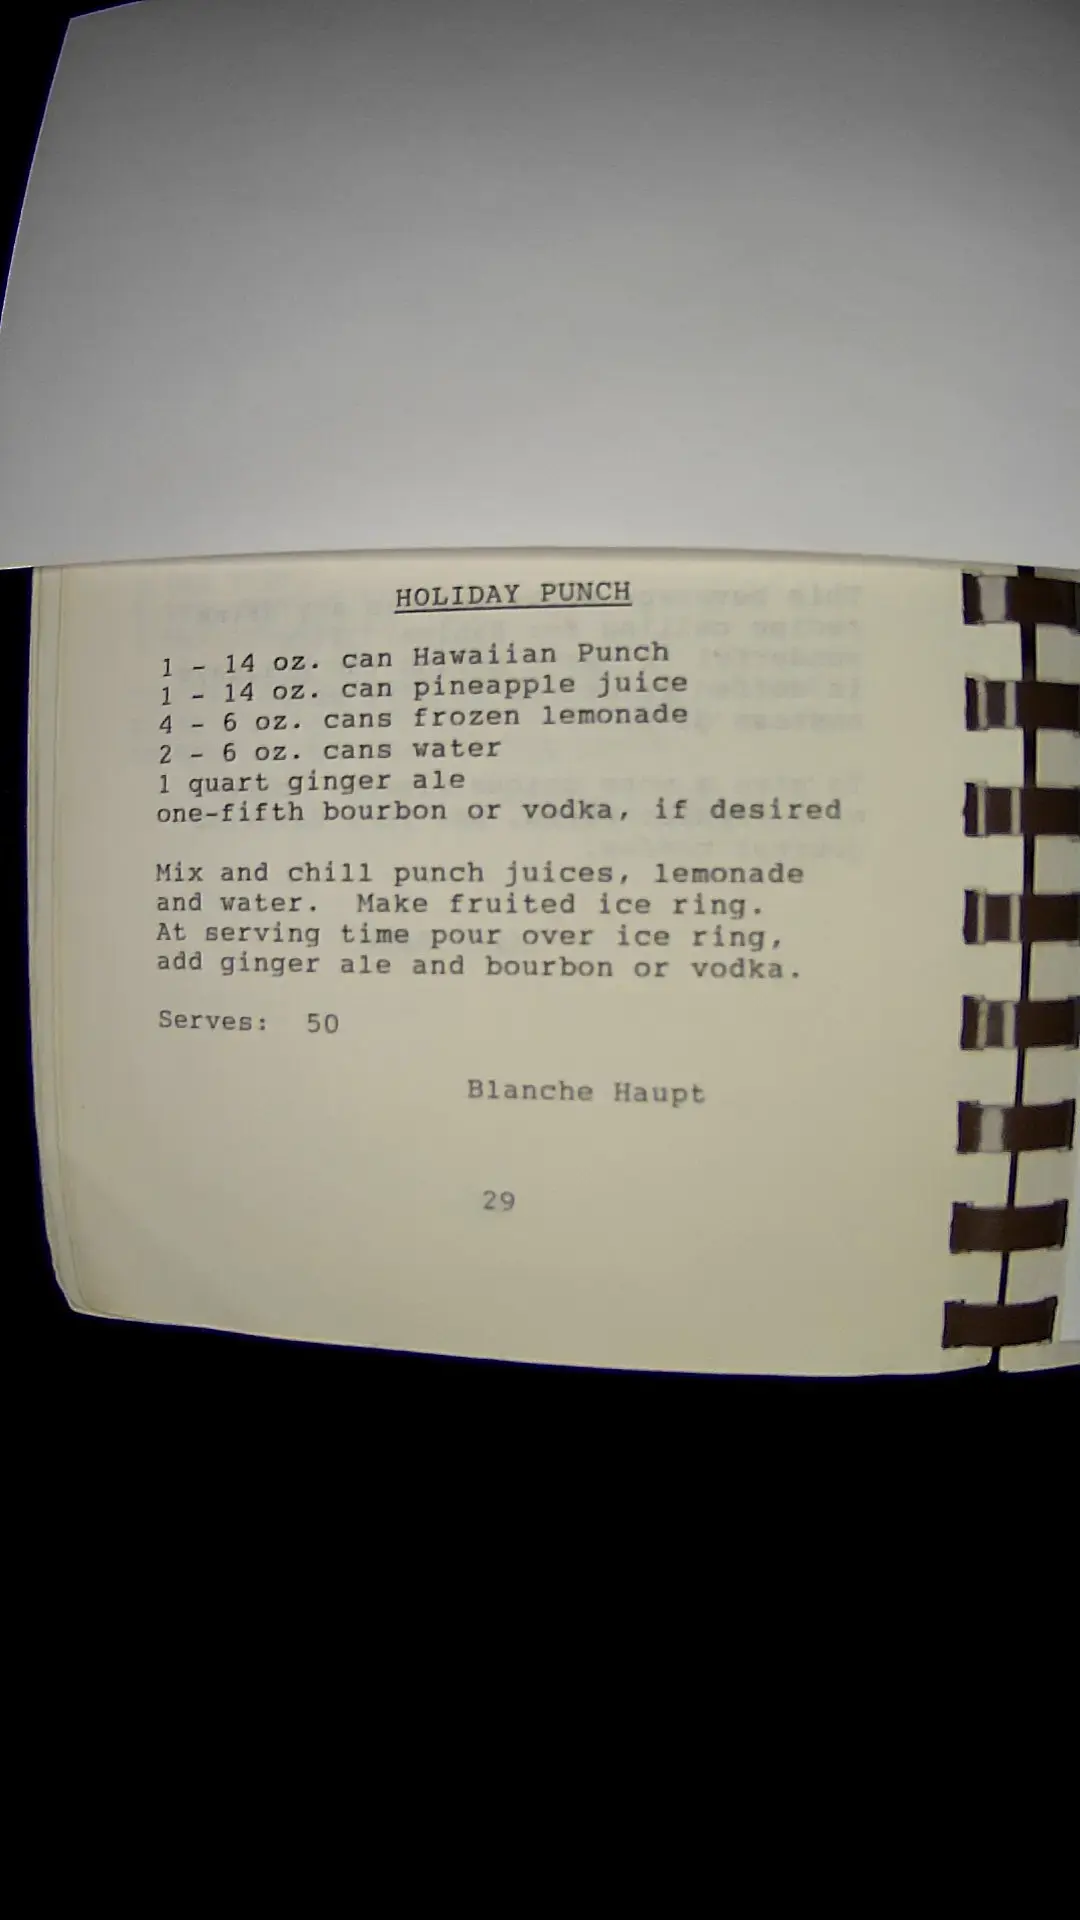 HOLIDAY PUNCH
1 - 14 oz. can Hawaiian Punch
1 - 14 oz. can pineapple juice
4 - 6 oz. cans frozen lemonade
2 - 6 oz. cans water
1 quart ginger ale
one-fifth bourbon or vodka, if desired
Mix and chill punch juices, lemonade
and water. Make fruited ice ring.
At serving time pour over ice ring,
add ginger ale and bourbon or vodka.
Serves: 50
Blanche Haupt
29